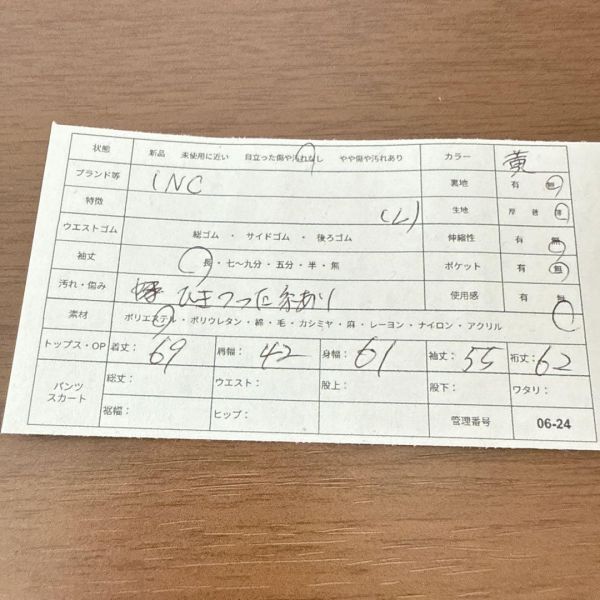 状態 新品 未使用に近い 目立った傷や汚れなし やや傷や汚れあり カラー 黄
ブランド等 INC 裏地 有 無
特徴 (L) 生地 厚 普 薄
ウエストゴム 総ゴム ・ サイドゴム ・ 後ろゴム 伸縮性 有 無
袖丈 長 ・ 七〜九分 ・ 五分 ・ 半 ・ 無 ポケット 有 無
汚れ・傷み ひきつった糸あり 使用感 有 無
素材 ポリエステル ・ ポリウレタン ・ 綿 ・ 毛 ・ カシミヤ ・ 麻 ・ レーヨン ・ ナイロン ・ アクリル
トップス・OP 着丈：69 肩幅：42 身幅：61 袖丈：55 裄丈：62
パンツ スカート 総丈： ウエスト： 股上： 股下： ワタリ：
裾幅： ヒップ： 管理番号 06-24